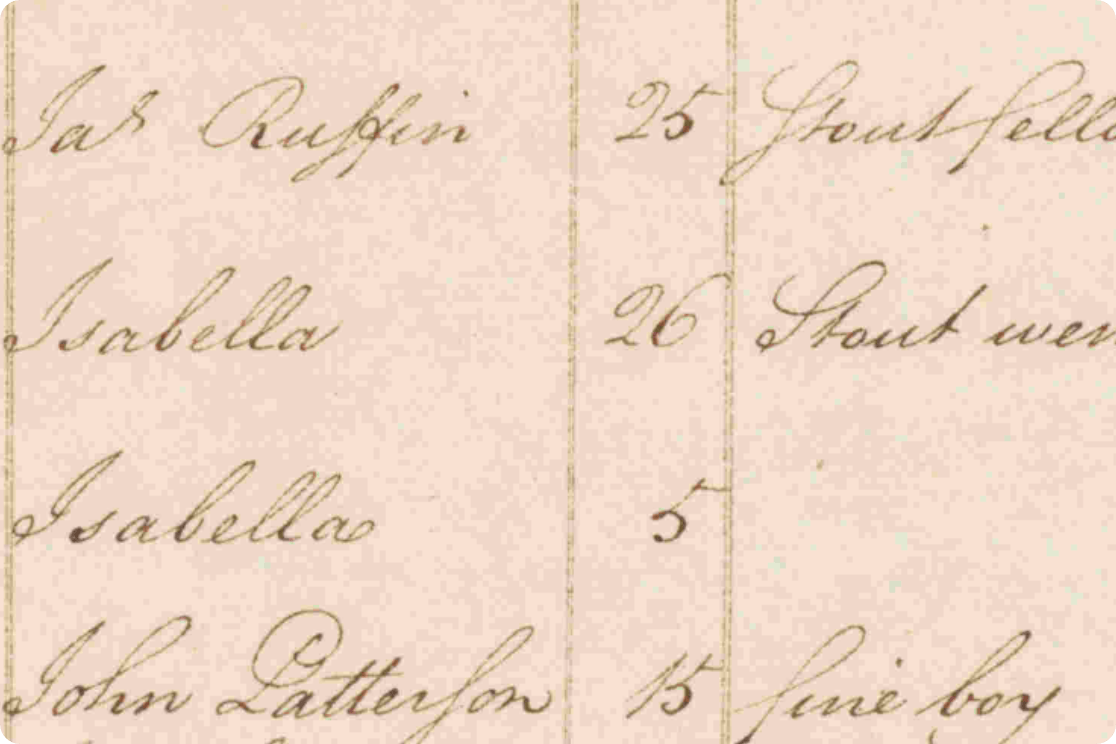 Jas Ruffin 25 Stout fello
Isabella 26 Stout wen
Isabella 5
John Patterson 15 fine boy